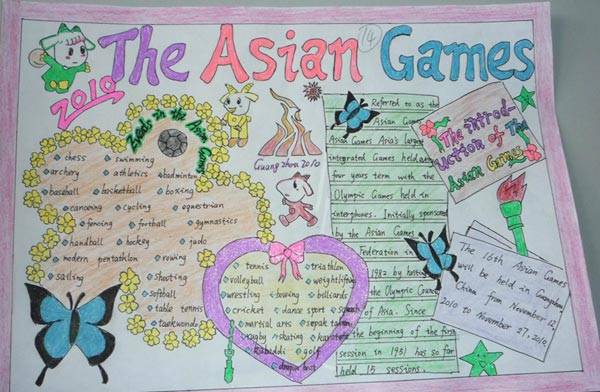 The Asian Games
14
2010
Events in the Asian Games
chess swimming
archery athletics badminton
baseball basketball boxing
canoeing cycling equestrian
fencing football gymnastics
handball hockey judo
modern pentathlon rowing
sailing shooting
softball
table tennis
taekwondo
Guang Zhou 2010
tennis triathlon
volleyball weightlifting
wrestling bowing billiards
cricket dance sport squash
martial arts sepak takraw
rugby skating karate
kabaddi golf
dragon boat
Referred to as the
Asian Games
Asian Games Asia's larg
integrated Games held every
four years term with the
Olympic Games held in
interphones. Initially sponsored
by the Asian Games
Federation in
1982 by
the Olympic Council
of Asia. Since
the beginning of the first
session in 1951 has so far
held 15 sessions.
The introd-
uction of The
Asian Games
The 16th Asian Games
will be held in Guangzhou,
China from November 12,
2010 to November 27, 2010